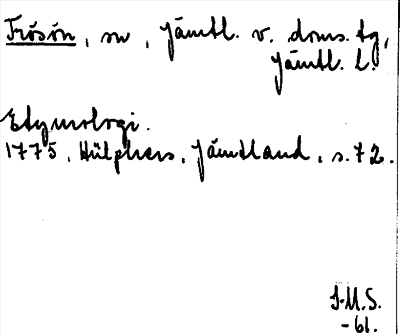 Frösön, sn, Jämtl. v. doms. tg,
Jämtl. L.
Etymologi.
1775, Hülphers, Jämtland, s. 72.
J.M.S.
-61.